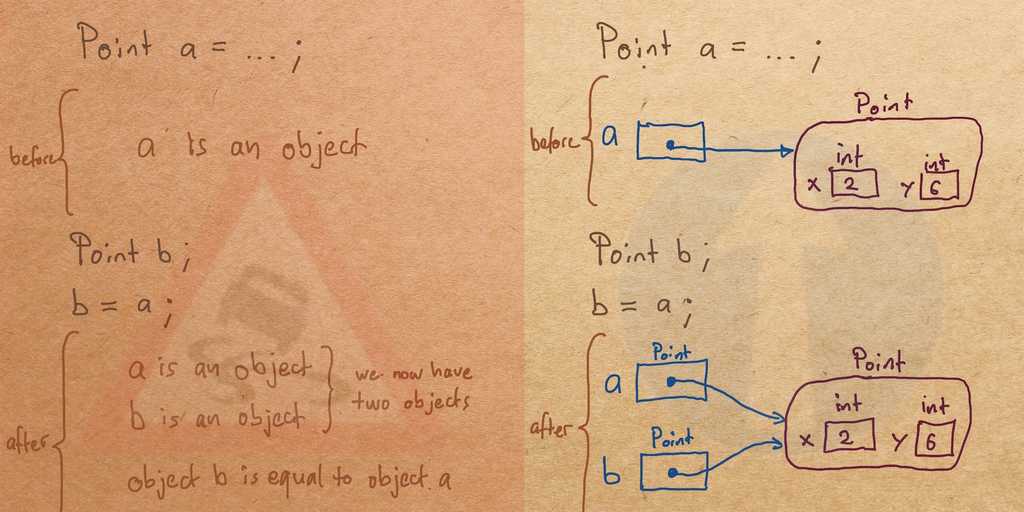 Point a = ... ;
before
a is an object
Point b ;
b = a ;
after
a is an object
b is an object
we now have
two objects
object b is equal to object a
Point a = ... ;
before
a
Point
int
int
x 2
y 6
Point b ;
b = a ;
after
Point
a
Point
b
Point
int
int
x 2
y 6